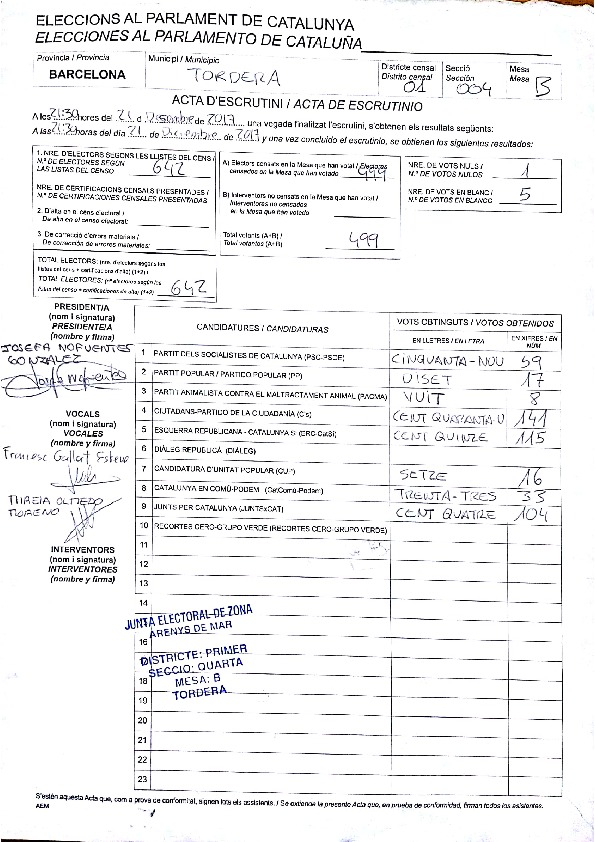 ELECCIONS AL PARLAMENT DE CATALUNYA
ELECCIONES AL PARLAMENTO DE CATALUÑA
Província / Provincia
BARCELONA
Municipi / Municipio
TORDERA
Districte censal
Distrito censal
01
Secció
Sección
004
Mesa
Mesa
B
ACTA D'ESCRUTINI / ACTA DE ESCRUTINIO
A les 21:30 hores del 21 d Desembre de 2017, una vegada finalitzat l'escrutini, s'obtenen els resultats següents:
A las 21:30 horas del día 21 de Diciembre de 2017 y una vez concluido el escrutinio, se obtienen los siguientes resultados:
1. NRE. D'ELECTORS SEGONS LES LLISTES DEL CENS /
N.º DE ELECTORES SEGÚN
LAS LISTAS DEL CENSO
642
NRE. DE CERTIFICACIONS CENSALS PRESENTADES /
N.º DE CERTIFICACIONES CENSALES PRESENTADAS
2. D'alta en el cens electoral /
De alta en el censo electoral:
3. De correcció d'errors materials /
De corrección de errores materiales:
TOTAL ELECTORS: (nre. d'electors segons les
llistes del cens + certificacions d'alta) (1+2) /
TOTAL ELECTORES: (nº electores según las
listas del censo + certificaciones de alta) (1+2)
642
A) Electors censats en la Mesa que han votat / Electores
censados en la Mesa que han votado
499
B) Interventors no censats en la Mesa que han votat /
Interventores no censados
en la Mesa que han votado
Total votants (A+B) /
Total votantes (A+B)
499
NRE. DE VOTS NULS /
N.º DE VOTOS NULOS
1
NRE. DE VOTS EN BLANC /
N.º DE VOTOS EN BLANCO
5
PRESIDENT/A
(nom i signatura)
PRESIDENTE/A
(nombre y firma)
JOSEFA NOFUENTES
GONZALEZ
VOCALS
(nom i signatura)
VOCALES
(nombre y firma)
Francesc Gallart Esteve
MIREIA OLMEDO
MORENO
INTERVENTORS
(nom i signatura)
INTERVENTORES
(nombre y firma)
CANDIDATURES / CANDIDATURAS
VOTS OBTINGUTS / VOTOS OBTENIDOS
EN LLETRES / EN LETRA
EN XIFRES / EN NÚM
1 PARTIT DELS SOCIALISTES DE CATALUNYA (PSC-PSOE) CINQUANTA-NOU 59
2 PARTIT POPULAR / PARTIDO POPULAR (PP) DISET 17
3 PARTIT ANIMALISTA CONTRA EL MALTRACTAMENT ANIMAL (PACMA) VUIT 8
4 CIUTADANS-PARTIDO DE LA CIUDADANÍA (C's) CENT QUARANTA-U 141
5 ESQUERRA REPUBLICANA - CATALUNYA SÍ (ERC-CatSí) CENT QUINZE 115
6 DIÀLEG REPUBLICÀ (DIÀLEG)
7 CANDIDATURA D'UNITAT POPULAR (CUP) SETZE 16
8 CATALUNYA EN COMÚ-PODEM (CatComú-Podem) TRENTA-TRES 33
9 JUNTS PER CATALUNYA (JUNTSxCAT) CENT QUATRE 104
10 RECORTES CERO-GRUPO VERDE (RECORTES CERO-GRUPO VERDE)
11
12
13
14
JUNTA ELECTORAL DE ZONA
ARENYS DE MAR
16
DISTRICTE: PRIMER
SECCIO: QUARTA
18
MESA: B
TORDERA
19
20
21
22
23
S'estén aquesta Acta que, com a prova de conformitat, signen tots els assistents. / Se extiende la presente Acta que, en prueba de conformidad, firman todos los asistentes.
AEM